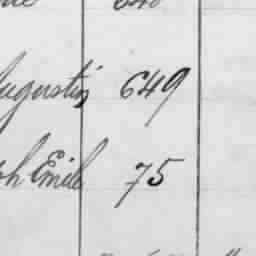 Augustin 649
ph Emile 75